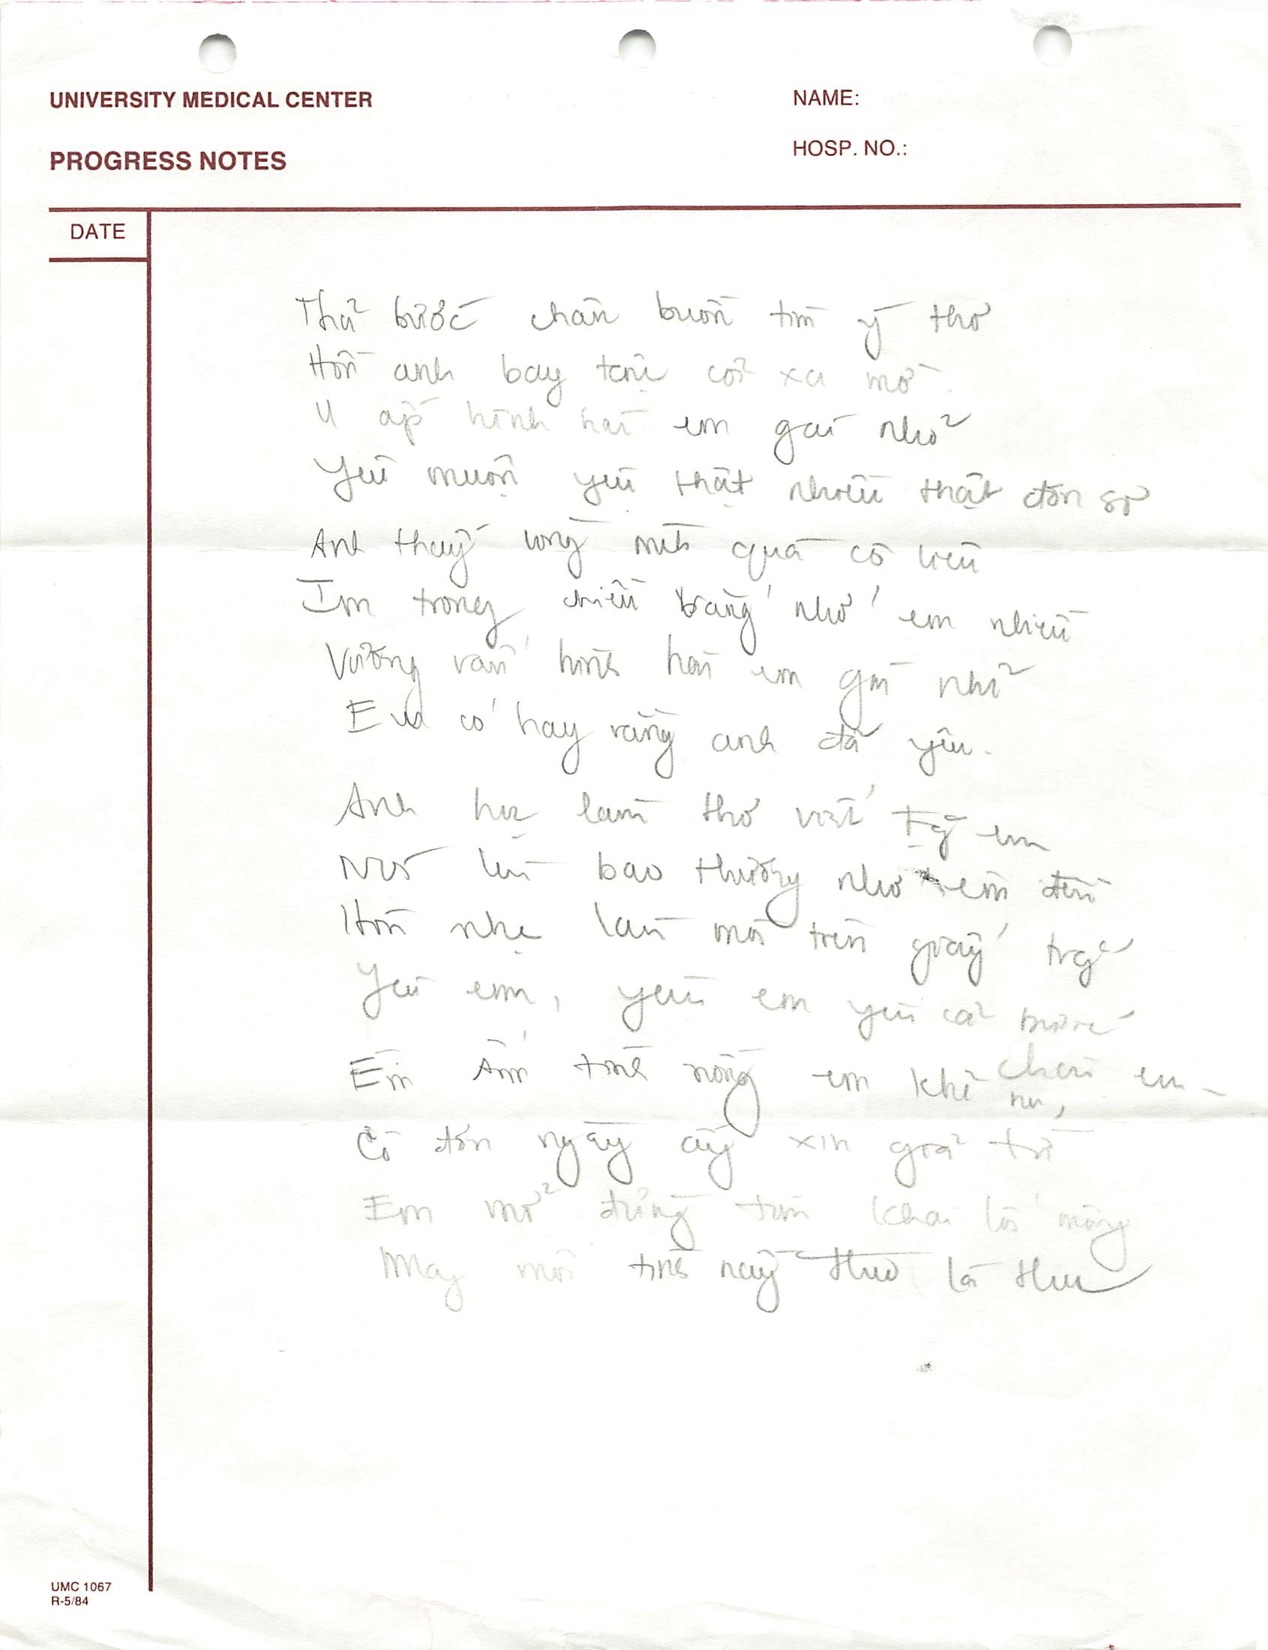 UNIVERSITY MEDICAL CENTER
NAME:
PROGRESS NOTES
HOSP. NO.:
DATE
Thả bước chân buồn tìm ý thơ
Hồn anh bay tận cõi xa mờ.
U ấp hình hài em gái nhỏ
Yêu muốn yêu thật nhiều thật đơn sơ
Anh thấy lòng mình quá cô liêu
Im trong chiều vắng nhớ em nhiều
Vương vấn hình hài em gái nhỏ
Em có hay rằng anh đã yêu.
Anh học làm thơ viết tặng em
Nơi bao thương nhớ em đến
Hôn nhẹ làn môi trên giấy trắng
Yêu em, yêu em yêu cả bước
chân em
Êm ấm tình nồng em khẽ
Cô đơn ngày ấy xin giã từ
Em mở đừng tìm khai lối mộng
May mối tình này thêu lá thu
UMC 1067
R-5/84